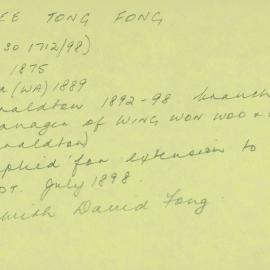 EE TONG FONG
SO 1712/98)
1875
(WA) 1889
raldton 1892-98 branch
anager of WING WON WOO &
raldton)
plied for extension to
OT. July 1898.
with David Fong.